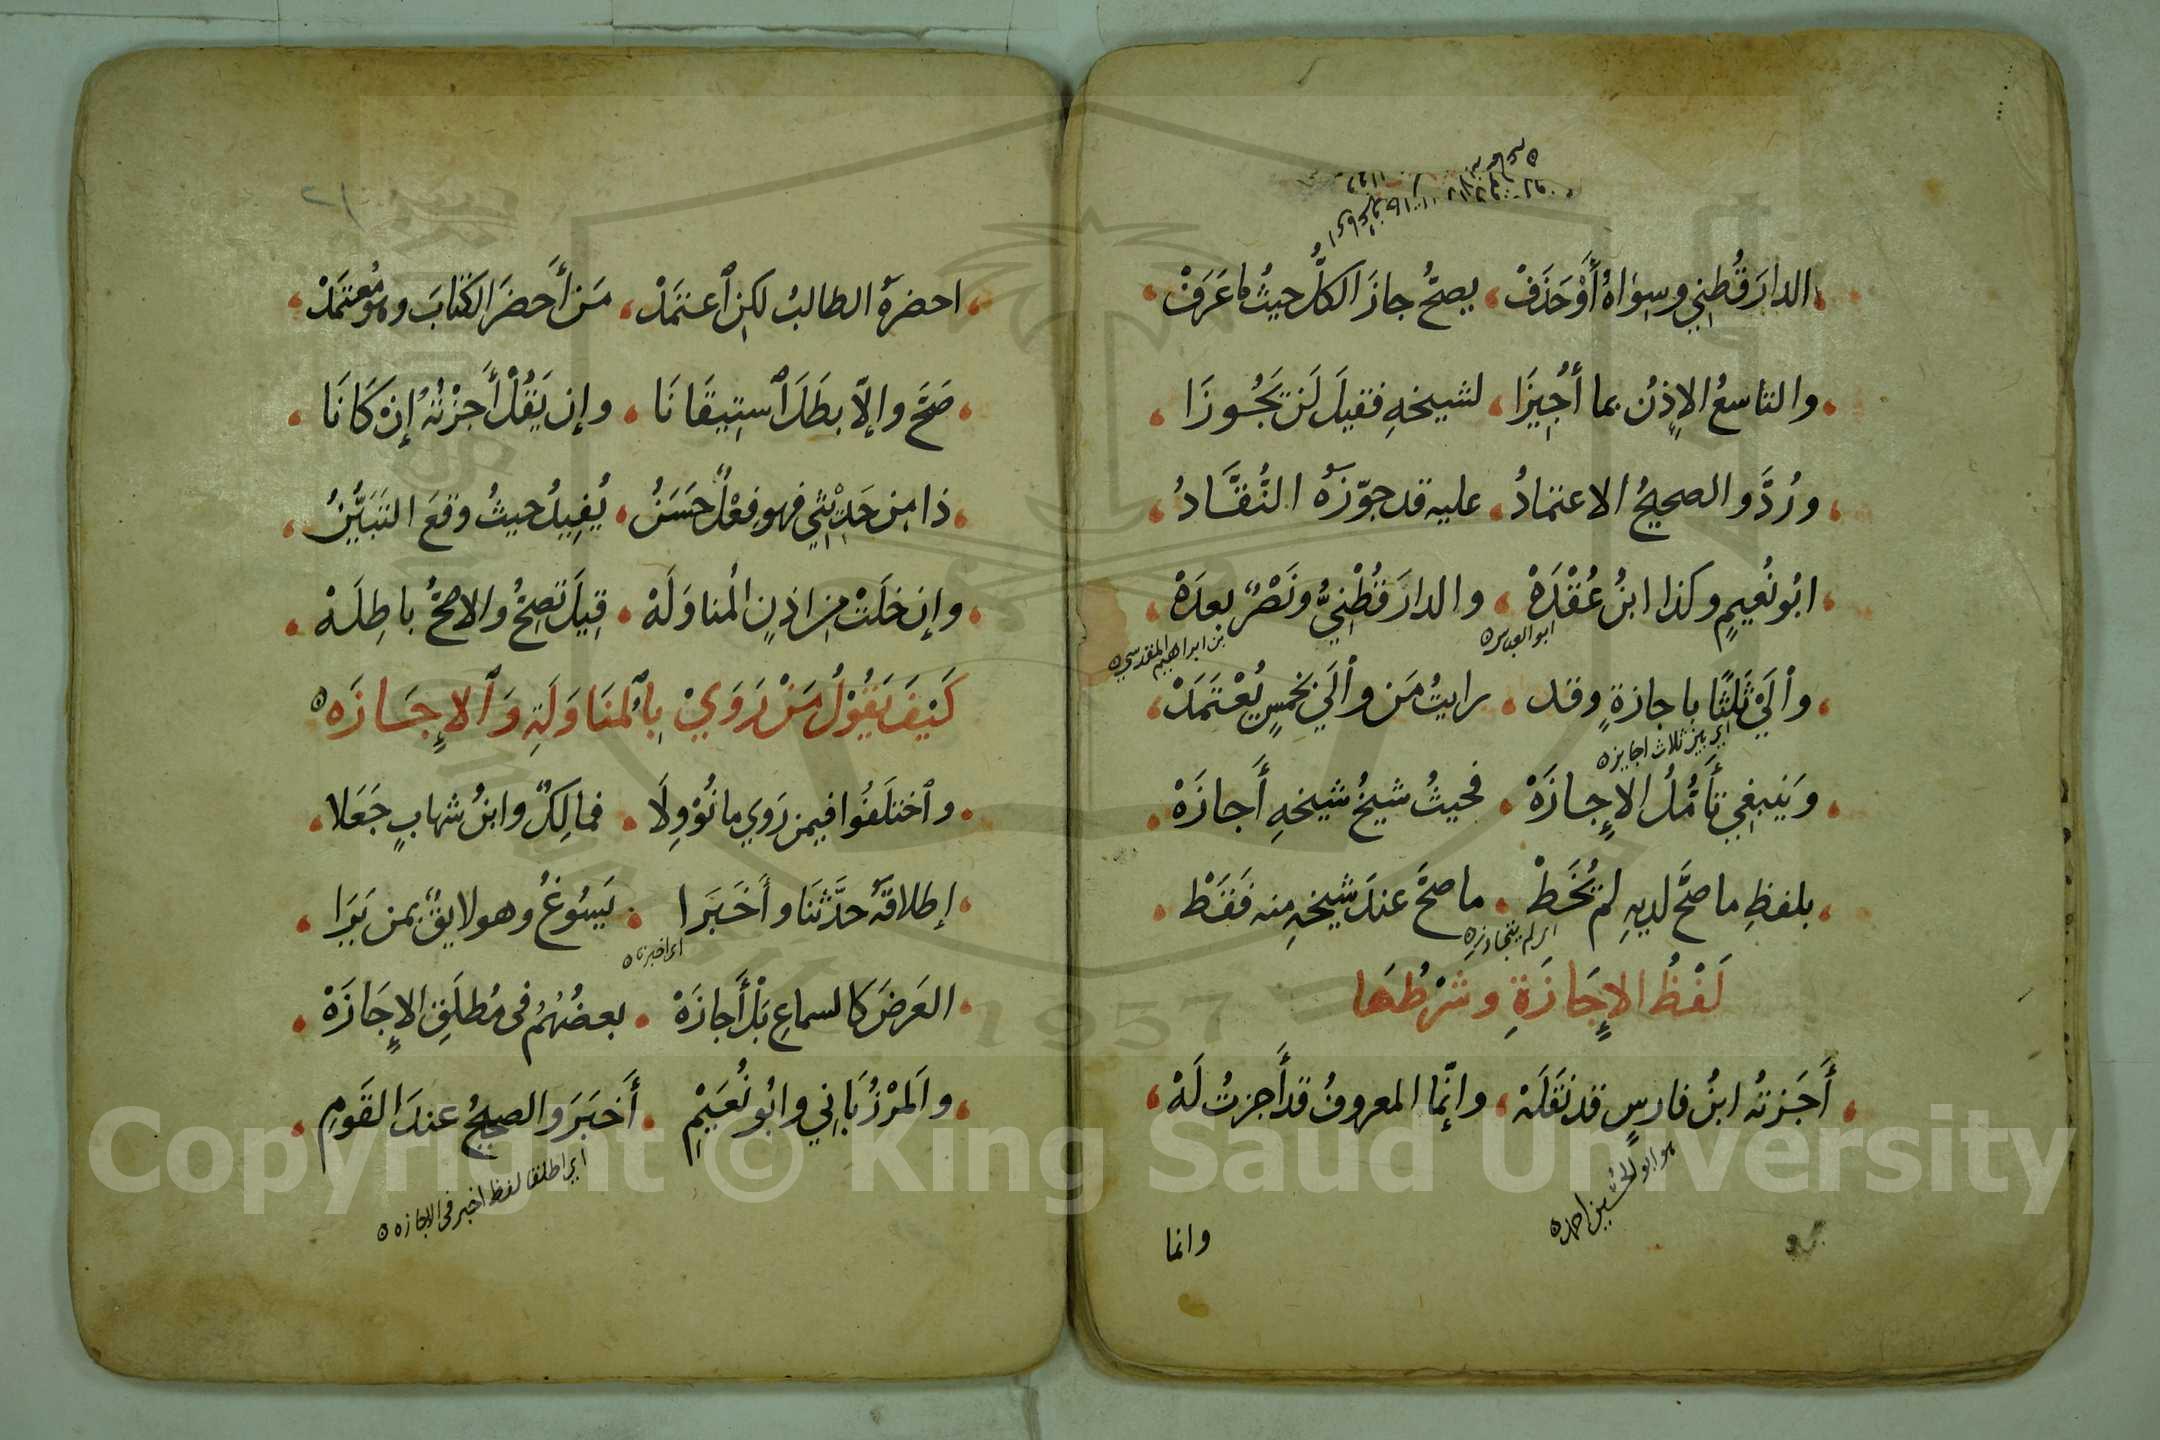 الدارَقُطنِي وسِوَاهُ أَوْ حَذَفْ يصحُّ جازَ الكلُّ حيثُ ما عَرَفْ
والتاسعُ الإِذنُ بما أُجِيزَا لشيخهِ فقيلَ لَن يَجُوزَا
ورُدَّ والصحيحُ الاعتمادُ عليه قد جوّزَهُ النُّقَّادُ
ابُو نُعَيمٍ وكذا ابنُ عُقْدَهْ والدارَقُطْنِيُّ ونَصْرٌ بعدَهْ
ابو العباس
بن ابراهيم المقدسي
وَالَيْ ثَلثًا باجازةٍ وقد رايتُ مَن وَالَي بخمسٍ يُعْتَمَدْ
اي بين ثلاث اجايز
وَينبغِي تَأَمُّلُ الإِجازَهْ فحيثُ شيخُ شيخهِ أَجازَهْ
بلفظِ ما صحَّ لديهِ لم يُخَطْ ما صحَّ عندَ شيخهِ منه فَقَطْ
اي لم يتجاوز
لَفْظُ الإِجَازَةِ وشَرْطُهَا
أَجَزتُه ابنُ فارسٍ قد نَقَلَهْ وإنّما المعروفُ قد أَجزتُ لَهْ
هو ابو الحسين احمد
وانما
احضرَهُ الطالبُ لكنِ ٱعتَمَدْ مَن أَحضَرَ الكتابَ وهو مُعتمَدْ
صَحَّ وإلاّ بطَلَ ٱستِيقَانَا وإن يَقُلْ أَجَزْتُهُ إنْ كَانَا
ذا مِن حَدِيْثِي فهو فِعْلٌ حَسَنُ يُفِيدُ حيثُ وقعَ التبَيُّنُ
وإن خلَتْ مِن اذنٍ المُناوَلَهْ قِيلَ تَصِحُّ والاصحُّ باطِلَهْ
كَيْفَ يَقُوْلُ مَنْ رَوَيْ بِٱلْمُنَاوَلَةِ وَٱلإِجَازَه
وٱختلَفُوا فيمن رَوَي ما نُوْوِلَا فمالِكٌ وابنُ شهابٍ جَعَلا
إطلاقَهُ حدَّثَنَا وأَخبَرا يَسُوغُ وهو لايقٌ بمن يَرَا
اي اخبرنا
العَرضَ كالسماعِ بَلْ أَجازَهْ بعضُهُمُ في مُطلَقِ الإِجَازَهْ
والمَرْزُبَانِي وابُو نُعَيْمِ أَخبَرَ والصحيحُ عندَ القَومِ
اي اطلقا لفظ اخبر في الاجازه